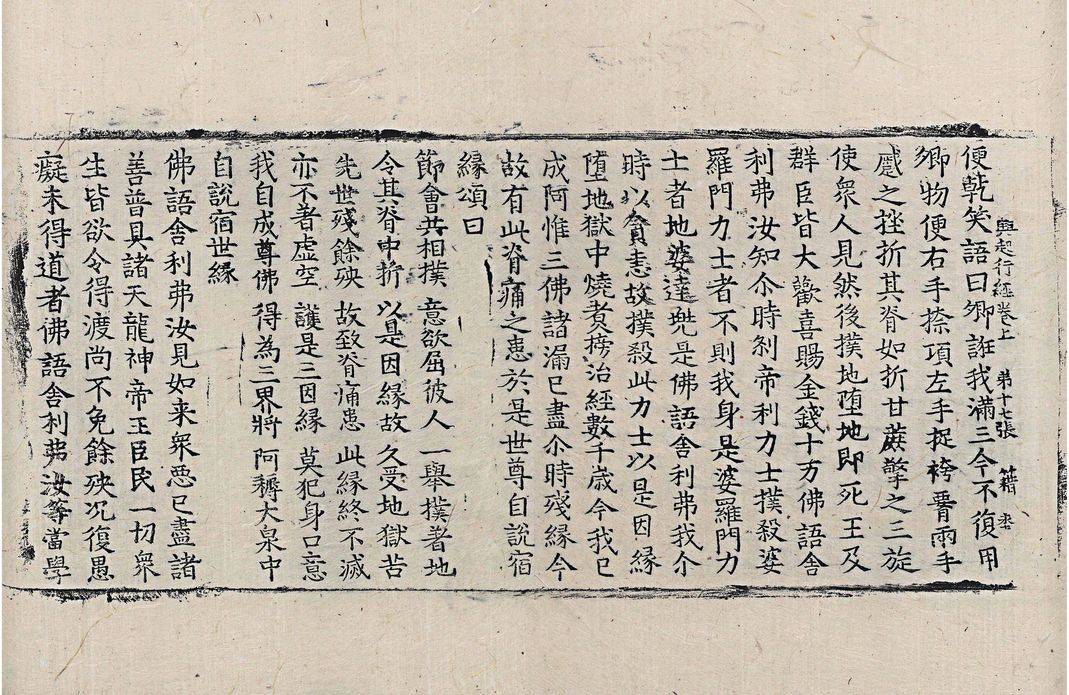 便乾笑語曰卿誑我滿三今不復用
興起行經卷上 第十七張 籍
卿物便右手捺項左手捉袴𦝫兩手
蹙之挫折其脊如折甘蔗擎之三旋
使衆人見然後撲地堕地即死王及
群臣皆大歡喜賜金錢十万佛語舎
利弗汝知尒時刹帝利力士撲殺婆
羅門力士者不則我身是婆羅門力
士者地婆達兠是佛語舎利弗我尒
時以貪恚故撲殺此力士以是因緣
堕地獄中燒煑搒治經數千歳今我已
成阿惟三佛諸漏已盡尒時殘緣今
故有此脊痛之患於是世尊自說宿
緣頌曰
節會共相撲 意欲屈彼人 一舉撲著地
令其脊中折 以是因緣故 久受地獄苦
先世殘餘殃 故致脊痛患 此緣終不滅
亦不著虛空 護是三因緣 莫犯身口意
我自成尊佛 得為三界將 阿耨大泉中
自說宿世緣
佛語舎利弗汝見如来衆惡已盡諸
善普具諸天龍神帝王臣民一切衆
生皆欲令得渡尚不免餘殃况復愚
癡未得道者佛語舎利弗汝等當學